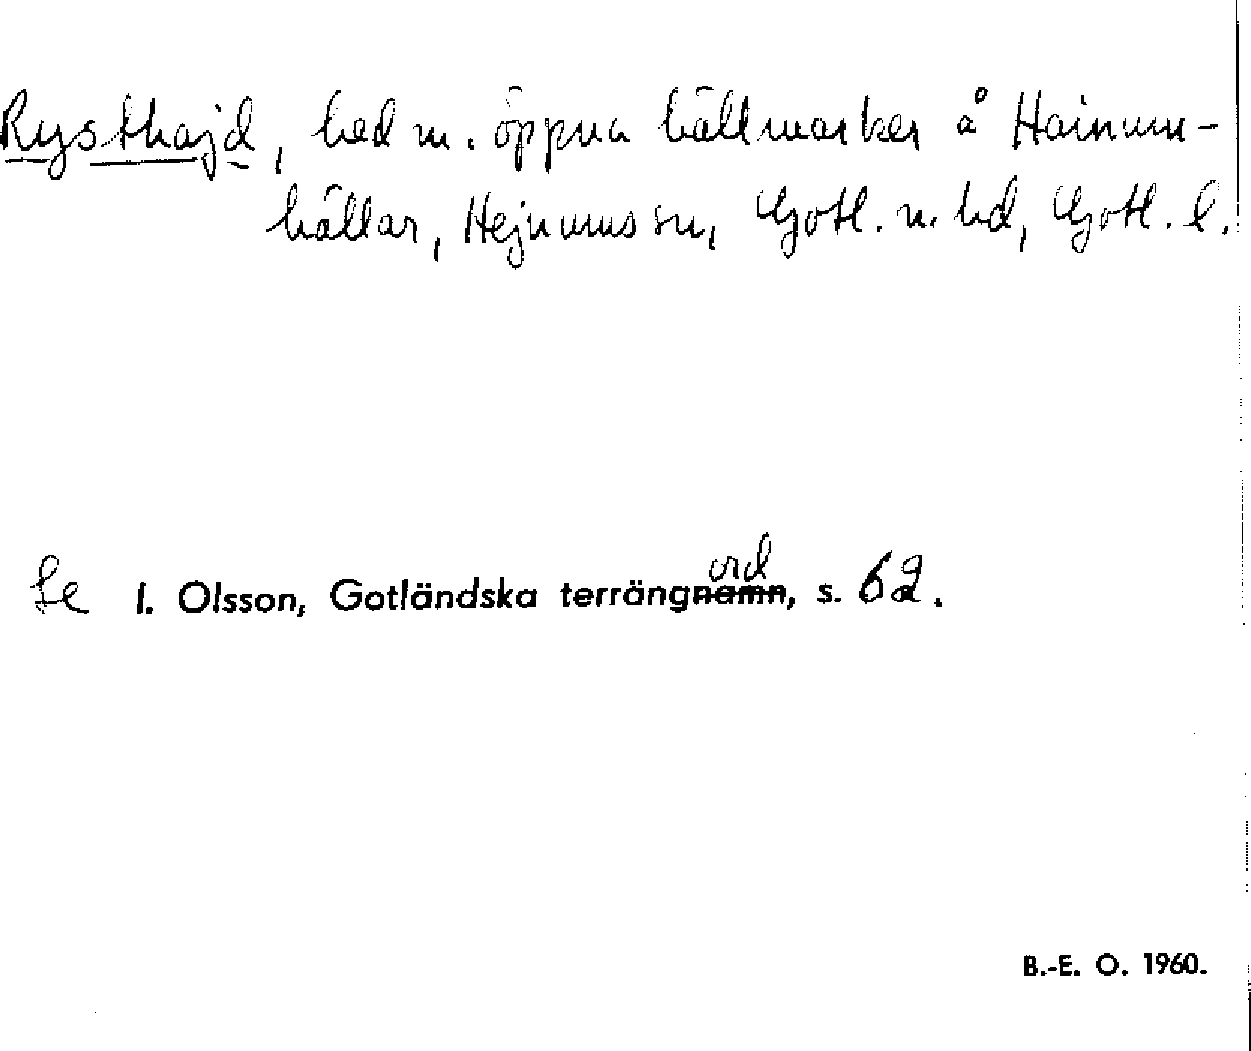 Rysthajd, hed m. öppna hällmarker å Hainum-
hällar, Hejnums sn, Gotl. n. hd, Gotl. l.
Se I. Olsson, Gotländska terrängnamn ord, s. 62.
B.-E. O. 1960.